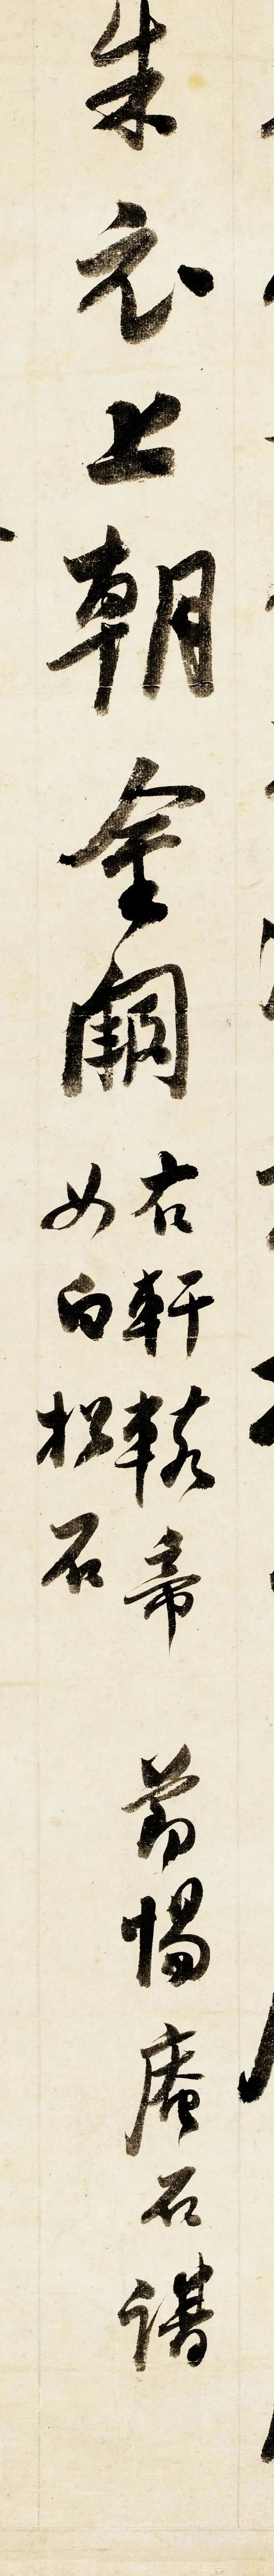 朱衣上朝金闕
右軒轅帝
女白松石
節惕庵石譜